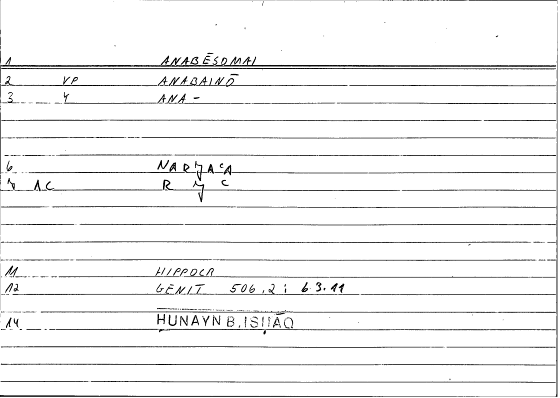 1 ANABĒSOMAI
2 VP ANABAINŌ
3 Y ANA-
6
AC R C
11 HIPPOCR
12 GENIT 506,2; 6.3.11
14 HUNAYN B. ISḤĀQ